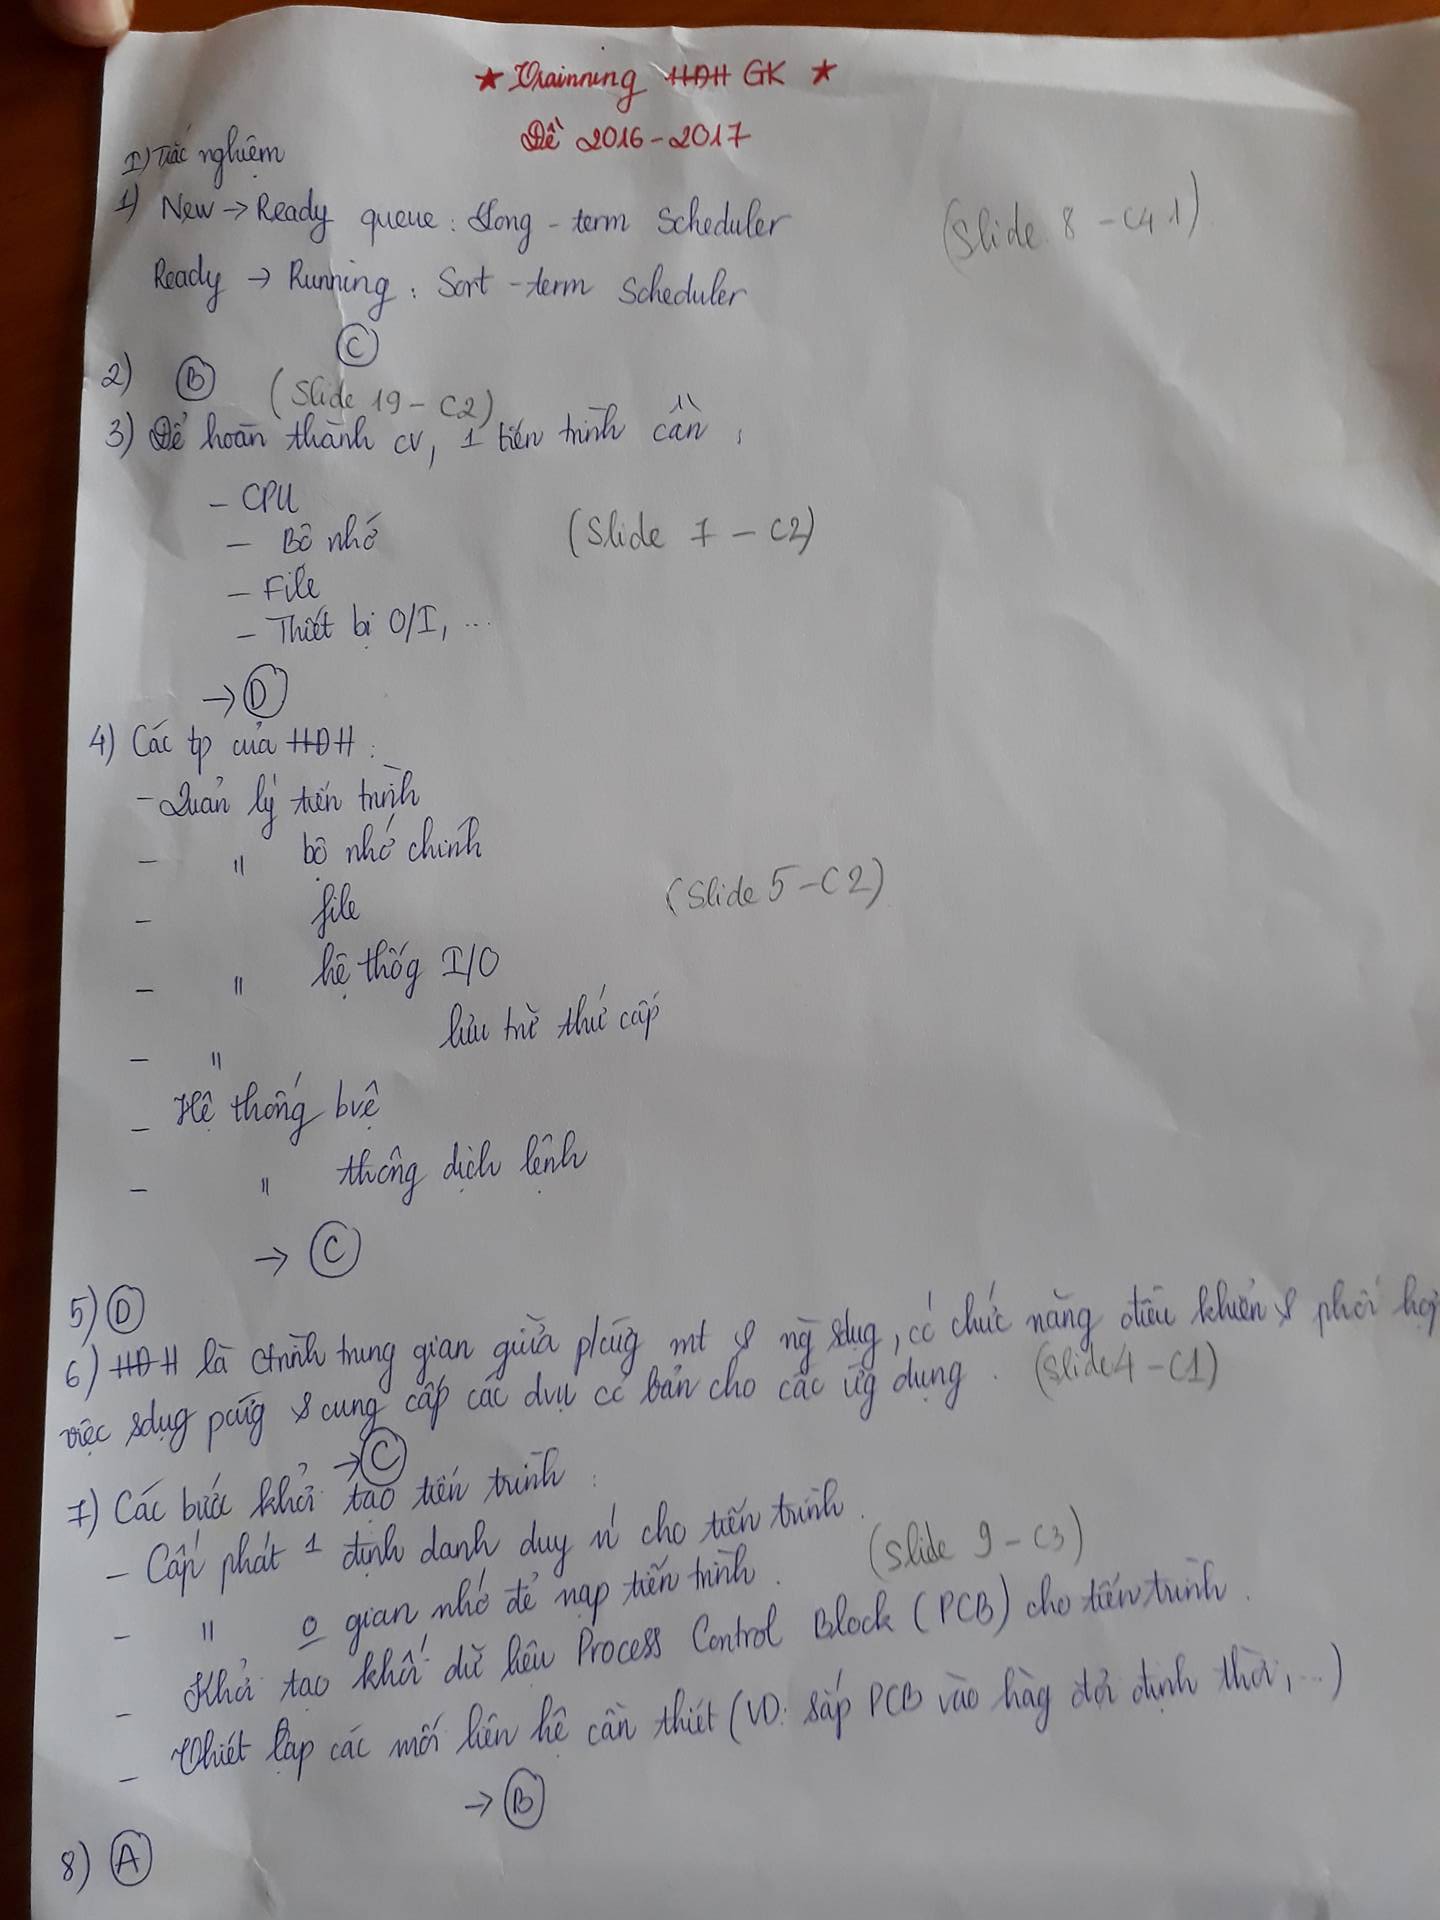 ★ Trainning HĐH GK ★
Đề 2016-2017
I) Trắc nghiệm
1) New → Ready queue: Long-term Scheduler (Slide 8 - C4.1)
Ready → Running: Sort-term Scheduler
C
2) B (Slide 19 - C2)
3) Để hoàn thành cv, 1 tiến trình cần:
- CPU
- Bộ nhớ (Slide 7 - C2)
- File
- Thiết bị O/I, ...
→ D
4) Các tp của HĐH:
- Quản lý tiến trình
- " bộ nhớ chính
- file (Slide 5 - C2)
- " hệ thốg I/O
- " lưu trữ thứ cấp
- Hệ thống bvệ
- " thông dịch lệnh
→ C
5) D
6) HĐH là ctrình trung gian giữa p/cứg mt & ng sdụg, có chức năng điều khiển & phối hợp
việc sdụg pcứg & cung cấp các dvụ cơ bản cho các ứg dụng. (Slide 4 - C1)
→ C
7) Các bước khởi tạo tiến trình:
- Cấp phát 1 định danh duy n' cho tiến trình.
- " o gian nhớ để nạp tiến trình. (Slide 9 - C3)
- Khởi tạo khối dữ liệu Process Control Block (PCB) cho tiến trình.
- Thiết lập các mối liên hệ cần thiết (VD: sắp PCB vào hàg đợi định thời, ...)
→ B
8) A